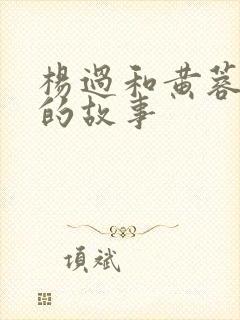 楊過和黄蓉
的故事
項斌